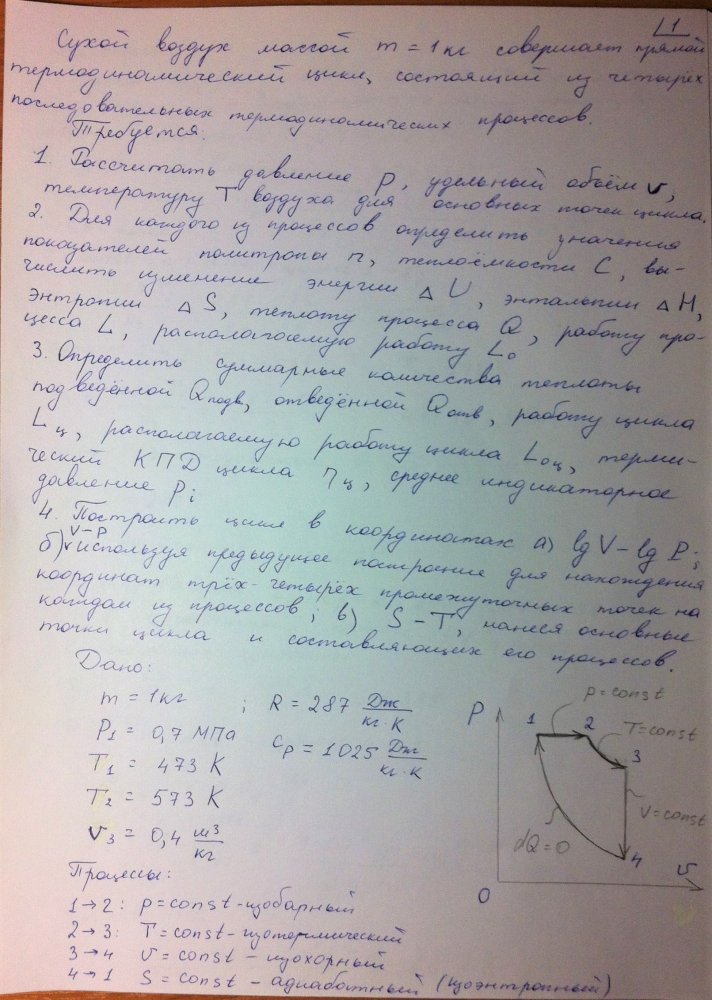 1
Сухой воздух массой m = 1 кг совершает прямой
термодинамический цикл, состоящий из четырёх
последовательных термодинамических процессов.
Требуется:
1. Рассчитать давление P, удельный объём v,
температуру T воздуха для основных точек цикла.
2. Для каждого из процессов определить значения
показателей политропы n, теплоёмкости C, вы-
числить изменение энергии ΔU, энтальпии ΔH,
энтропии ΔS, теплоту процесса Q, работу про-
цесса L, располагаемую работу L₀
3. Определить суммарные количества теплоты
подведённой Qподв, отведённой Qотв, работу цикла
Lц, располагаемую работу цикла L₀ц, терми-
ческий КПД цикла ηц, среднее индикаторное
давление Pi
4. Построить цикл в координатах а) lg V – lg P;
б) V–P используя предыдущее построение для нахождения
координат трёх-четырёх промежуточных точек на
каждом из процессов; в) S – T, нанеся основные
точки цикла и составляющих его процессов.
Дано:
m = 1 кг ; R = 287 Дж/кг·К
P₁ = 0,7 МПа cp = 1025 Дж/кг·К
T₁ = 473 К
T₂ = 573 К
v₃ = 0,4 м³/кг
Процессы:
1→2: p = const - изобарный
2→3: T = const - изотермический
3→4 v = const - изохорный
4→1 S = const - адиабатный (изоэнтропный)
P
p = const
1 2
T = const
3
V = const
dQ = 0
4
v
0